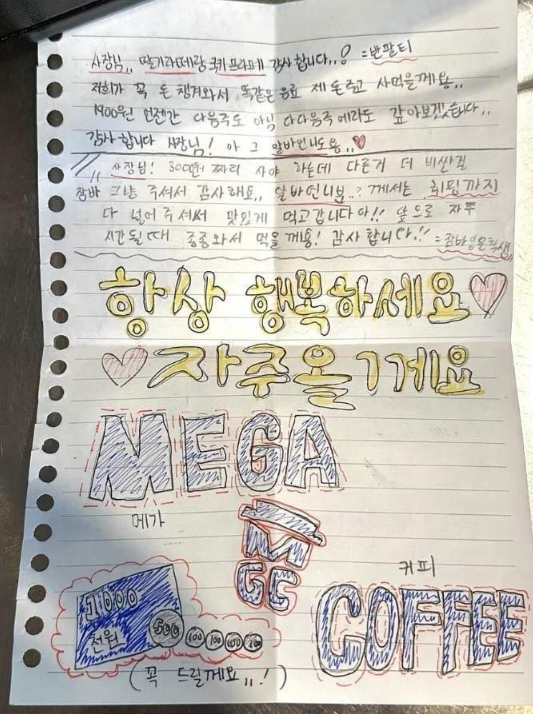 사장님,, 딸기라떼랑 쿠키프라페 감사합니다,,! =반팔티
저희가 꼭 돈 챙겨와서 똑같은 음료 제 돈주고 사먹을게요,,
1900원 언젠간 다음주도 아님 다다음주에라도 갚아보겠습니다,,
감사합니다 사장님! 아 그 알바언니도용,,♥
사장님! 3000원 짜리 사야 하는데 다른거 더 비싼걸
그냥 주셔서 감사해요,, 알바언니분..? 께서는 휘핑까지
다 넣어 주셔서 맛있게 먹고갑니다아!! 앞으로 자주
시간될때 종종와서 먹을게용! 감사합니다!!
항상 행복하세요♥
♥자주올게요
MEGA
메가
M
GC
커피
COFFEE
1000
천원
500 100 100 100 100
(꼭 드릴게요,,!)